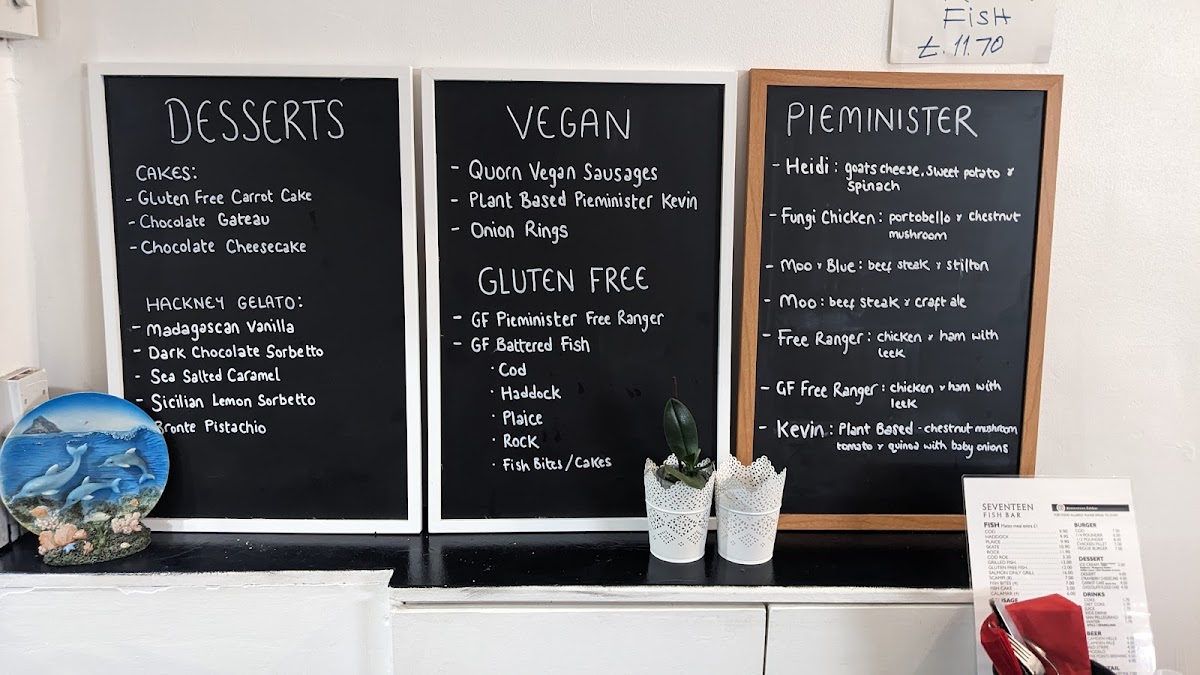 FISH
£.11.70
DESSERTS
CAKES:
- Gluten Free Carrot Cake
- Chocolate Gateau
- Chocolate Cheesecake
HACKNEY GELATO:
- Madagascan Vanilla
- Dark Chocolate Sorbetto
- Sea Salted Caramel
- Sicilian Lemon Sorbetto
Bronte Pistachio
VEGAN
- Quorn Vegan Sausages
- Plant Based Pieminister Kevin
- Onion Rings
GLUTEN FREE
- GF Pieminister Free Ranger
- GF Battered Fish
· Cod
· Haddock
· Plaice
· Rock
· Fish Bites/Cakes
PIEMINISTER
- Heidi: goats cheese, sweet potato &
Spinach
- Fungi Chicken: portobello & chestnut
mushroom
- Moo & Blue: beef steak & stilton
- Moo: beef steak & craft ale
- Free Ranger: chicken & ham with
leek
- GF Free Ranger: chicken & ham with
leek
- Kevin: Plant Based - chestnut mushroom
tomato & quinoa with baby onions
SEVENTEEN
FISH BAR
FISH
COD
HADDOCK
PLAICE
SKATE
ROCK
COD ROE
GRILLED FISH
GLUTEN FREE FISH
SALMON ONLY GRILL
SCAMPI (8)
FISH BITES (4)
FISH CAKE
CALAMARI (6)
BURGER
CHICKEN FILLET
VEGGIE BURGER
DESSERT
ICE CREAM
DRINKS
COKE
DIET COKE
BEER